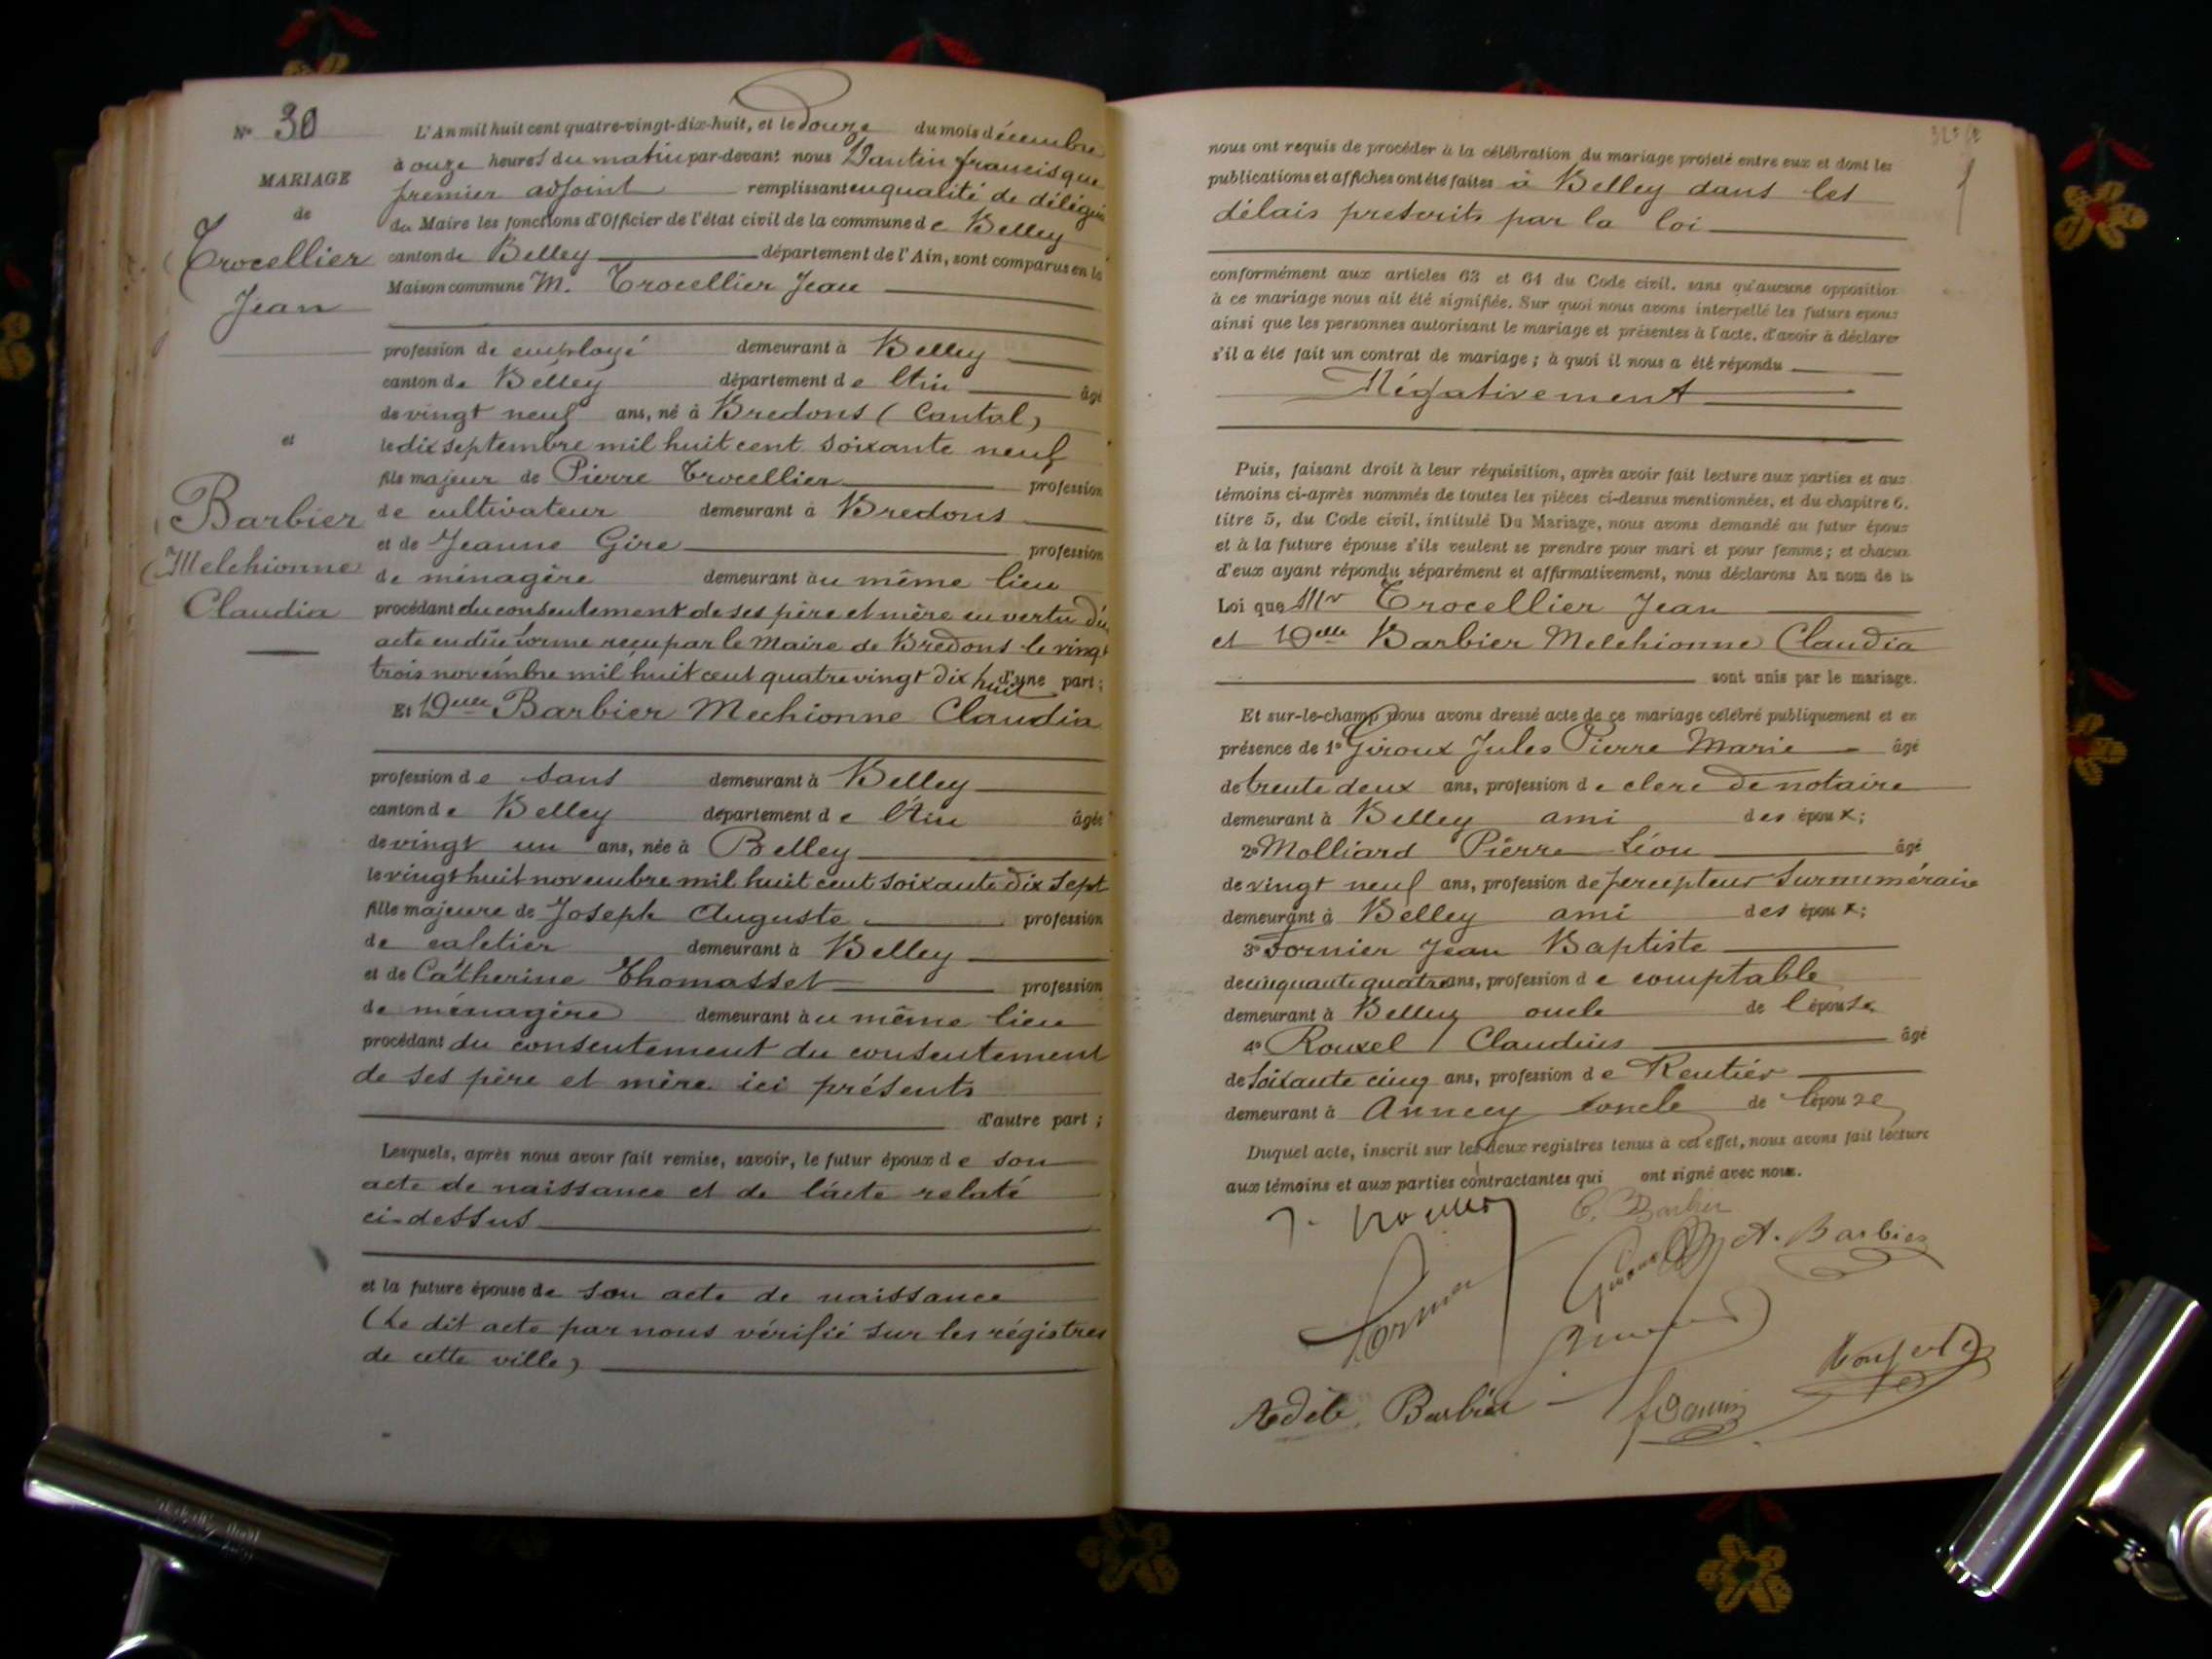 N° 30
MARIAGE
de
Trocellier
Jean
et
Barbier
Melchionne
Claudia
L'An mil huit cent quatre-vingt-dix-huit, et le douze du mois décembre
à onze heures du matin par-devant nous Dantin francisque
premier adjoint remplissant en qualité de délégué
du Maire les fonctions d'Officier de l'état civil de la commune de Belley
canton de Belley département de l'Ain, sont comparus en la
Maison commune M. Trocellier Jean
profession de employé demeurant à Belley
canton de Belley département de l'Ain âgé
de vingt neuf ans, né à Bredons (Cantal)
le dix septembre mil huit cent soixante neuf
fils majeur de Pierre Trocellier profession
de cultivateur demeurant à Bredons
et de Jeanne Gire profession
de ménagère demeurant au même lieu
procédant du consentement de ses père et mère en vertu d'un
acte en dûe forme reçu par le Maire de Bredons le vingt
trois novembre mil huit cent quatre vingt dix huit d'une part;
Et Delle Barbier Mechionne Claudia
profession de sans demeurant à Belley
canton de Belley département de l'Ain âgée
de vingt un ans, née à Belley
le vingt huit novembre mil huit cent soixante dix sept
fille majeure de Joseph Auguste profession
de cafetier demeurant à Belley
et de Catherine Thomasset profession
de ménagère demeurant au même lieu
procédant du consentement du consentement
de ses père et mère ici présents
d'autre part;
Lesquels, après nous avoir fait remise, savoir, le futur époux de son
acte de naissance et de l'acte relaté
ci-dessus
et la future épouse de son acte de naissance
(Le dit acte par nous vérifié sur les régistres
de cette ville)
nous ont requis de procéder à la célébration du mariage projeté entre eux et dont les
publications et affiches ont été faites à Belley dans les
délais prescrits par la loi
conformément aux articles 63 et 64 du Code civil, sans qu'aucune opposition
à ce mariage nous ait été signifiée. Sur quoi nous avons interpellé les futurs époux
ainsi que les personnes autorisant le mariage et présentes à l'acte, d'avoir à déclarer
s'il a été fait un contrat de mariage; à quoi il nous a été répondu
Négativement
Puis, faisant droit à leur réquisition, après avoir fait lecture aux parties et aux
témoins ci-après nommés de toutes les pièces ci-dessus mentionnées, et du chapitre 6.
titre 5, du Code civil, intitulé Du Mariage, nous avons demandé au futur époux
et à la future épouse s'ils veulent se prendre pour mari et pour femme; et chacun
d'eux ayant répondu séparément et affirmativement, nous déclarons Au nom de la
Loi que Mr Trocellier Jean
et Delle Barbier Melchionne Claudia
sont unis par le mariage.
Et sur-le-champ nous avons dressé acte de ce mariage célébré publiquement et en
présence de 1° Giroux Jules Pierre Marie âgé
de trente deux ans, profession de clerc de notaire
demeurant à Belley ami des époux;
2° Molliard Pierre Léon âgé
de vingt neuf ans, profession de percepteur surnuméraire
demeurant à Belley ami des époux;
3° Fornier Jean Baptiste
de cinquante quatre ans, profession de comptable
demeurant à Belley oncle de l'épouse
4° Rouxel Claudius âgé
de soixante cinq ans, profession de Rentier
demeurant à Annecy oncle de l'épouse
Duquel acte, inscrit sur les deux registres tenus à cet effet, nous avons fait lecture
aux témoins et aux parties contractantes qui ont signé avec nous.
C. Barbier
A. Barbier
Adèle Barbier